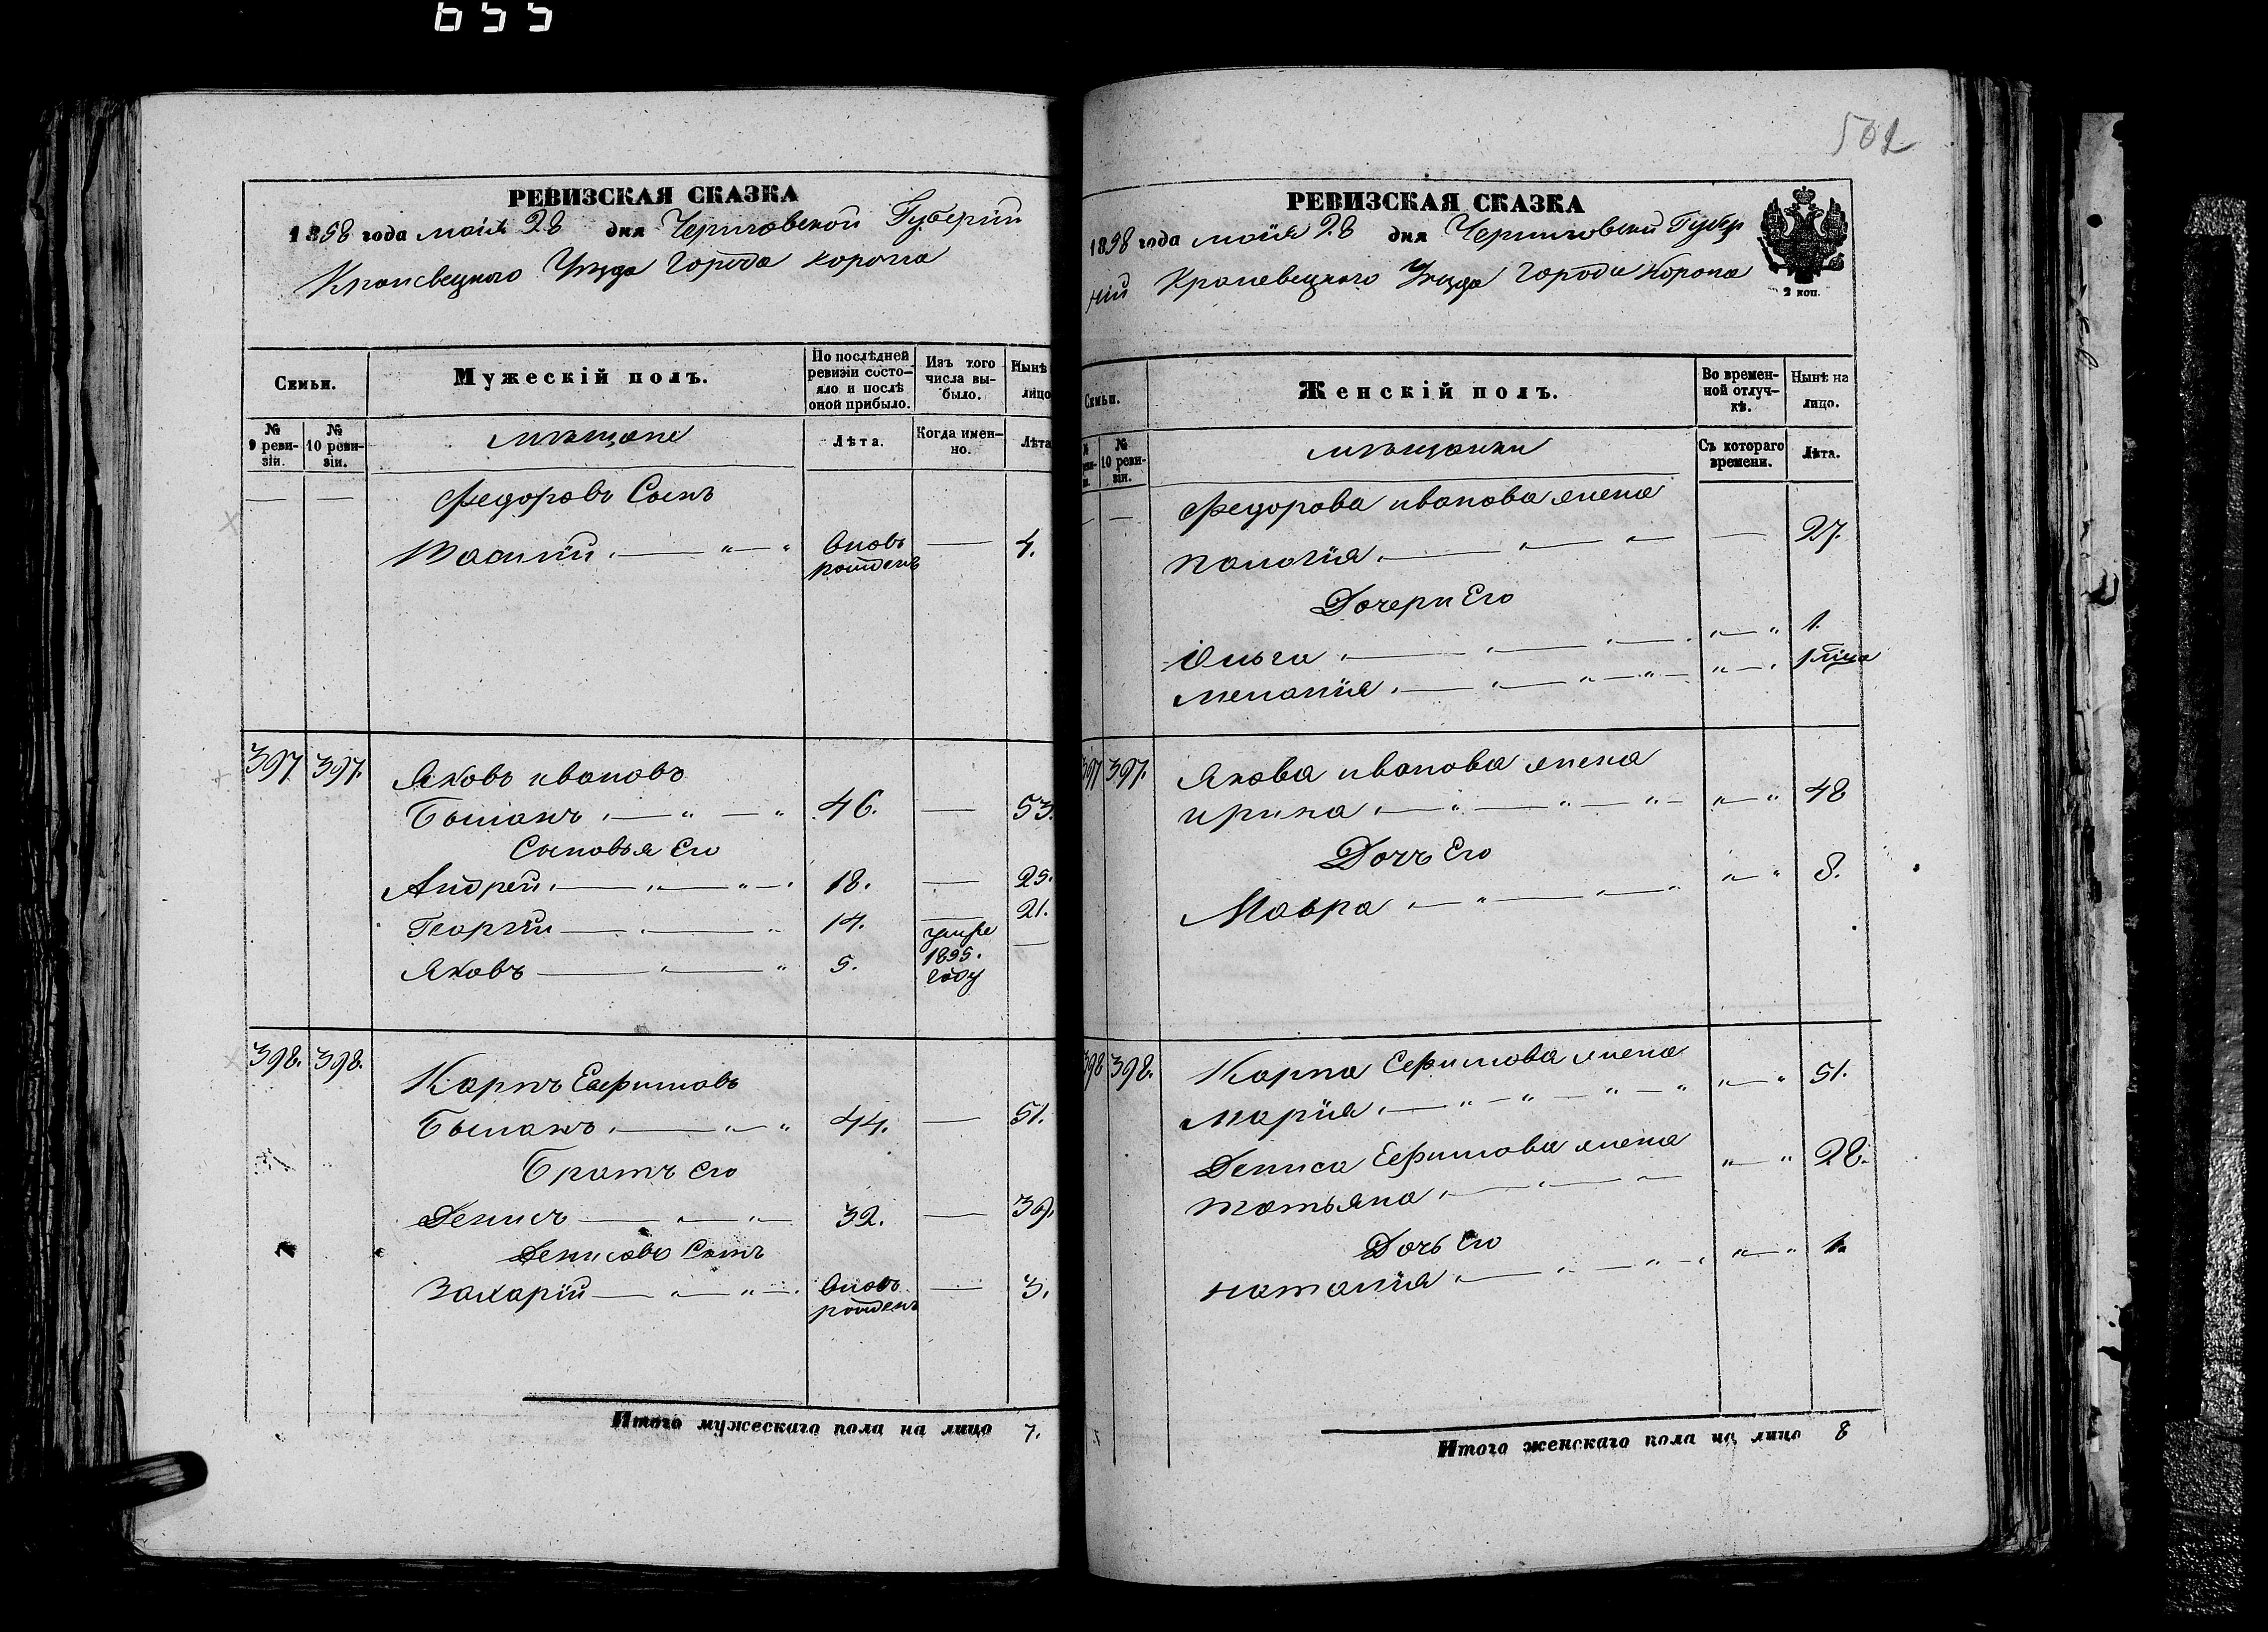 655
502
РЕВИЗСКАЯ СКАЗКА
1858 года маія 28 дня Черниговской Губерніи
Кролевецкого Уѣзда Города Коропа
Семьи.
Мужескій полъ.
По послѣдней ревизіи состояло и послѣ оной прибыло.
Изъ того числа выбыло.
Нынѣ
лицо
№ 9 ревизіи.
№ 10 ревизіи.
мѣщане
Лѣта.
Когда именно.
Лѣта
Федоровъ Сынъ
Василій вновь рожденъ — 4.
397 397. Яковъ ивановъ
Быланъ 46. — 53.
Сыновья Его
Андрей 18. — 25.
Георгій 14. — 21.
Яковъ 5. умре 1855. году —
398. 398. Карпъ Ефимовъ
Быланъ 44. — 51.
Братъ его
Денисъ 32. — 39.
Денисовъ Сынъ
Захарій вновь рожденъ — 3.
Итого мужескаго пола на лицо 7.
РЕВИЗСКАЯ СКАЗКА
1858 года маія 28 дня Черниговской Губер
ніи Кролевецкого Уѣзда Города Коропа
2 коп.
Семьи.
Женскій полъ.
Во временной отлучкѣ.
Нынѣ на лицо.
№ 10 ревизіи.
мѣщанки
Съ котораго времени.
Лѣта.
Федорова иванова жена
Палагія — 27.
Дочери Его
Ольга 1.
Меланія 1
397 397. Якова иванова жена
ирина 48
Дочь Его
Мавра 8.
398 398. Карпа Ефимова жена
Марія 51.
Дениса Ефимова жена
татьяна 28.
Дочь Его
наталія 1.
Итого женскаго пола на лицо 8